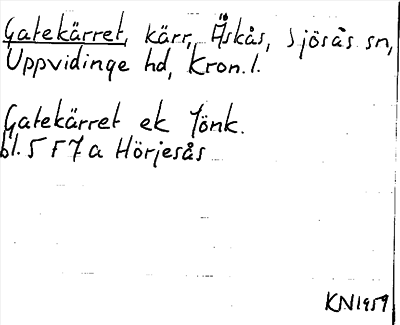 Gatekärret, kärr, Äskås, Sjösås sn,
Uppvidinge hd, Kron.l.
Gatekärret ek Jönk.
bl. 5 F 7 a Hörjesås
KN1959